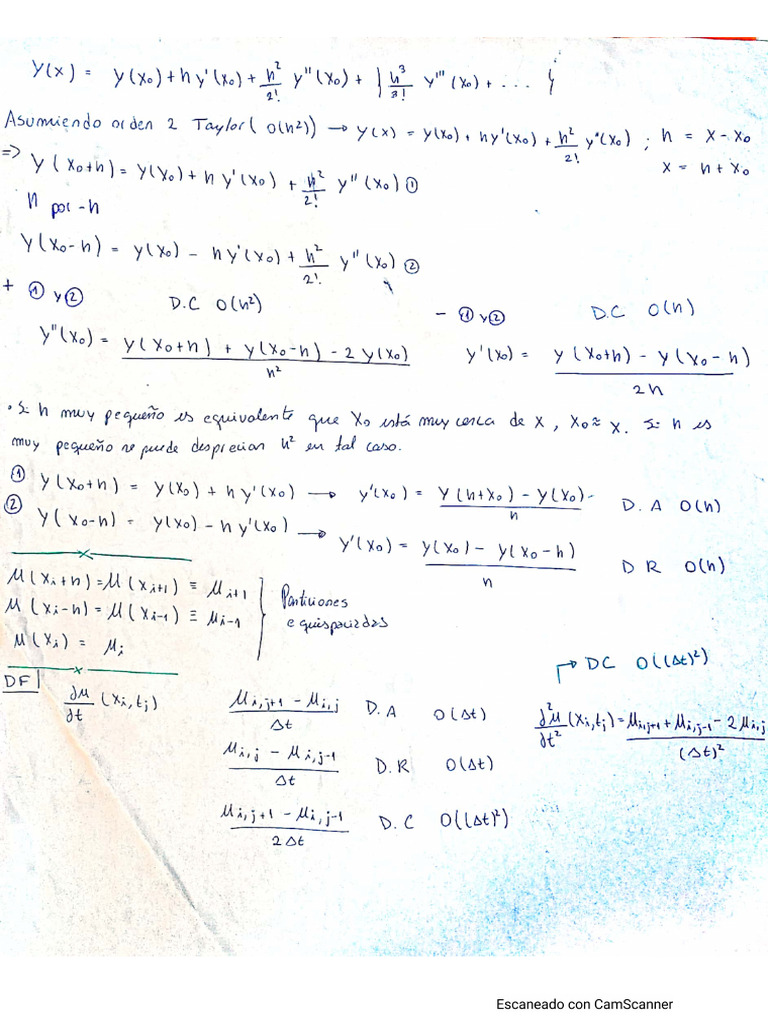 y(x) = y(x₀) + h y'(x₀) + h²/2! y''(x₀) + { h³/3! y'''(x₀) + ... }
Asumiendo orden 2 Taylor ( O(h²)) → y(x) = y(x₀) + h y'(x₀) + h²/2! y''(x₀) ; h = x - x₀
x = h + x₀
⇒ y(x₀+h) = y(x₀) + h y'(x₀) + h²/2! y''(x₀) ①
h por -h
y(x₀-h) = y(x₀) - h y'(x₀) + h²/2! y''(x₀) ②
+ ① y ② D.C O(h²)
y''(x₀) = (y(x₀+h) + y(x₀-h) - 2y(x₀)) / h²
- ① y ② D.C O(h)
y'(x₀) = (y(x₀+h) - y(x₀-h)) / 2h
• Si h muy pequeño es equivalente que x₀ está muy cerca de x, x₀ ≈ x. Si h es
muy pequeño se puede despreciar h² en tal caso.
① y(x₀+h) = y(x₀) + h y'(x₀) → y'(x₀) = (y(h+x₀) - y(x₀)) / h D.A O(h)
② y(x₀-h) = y(x₀) - h y'(x₀) → y'(x₀) = (y(x₀) - y(x₀-h)) / h D R O(h)
μ(xᵢ+h) = μ(xᵢ₊₁) ≡ μᵢ₊₁
μ(xᵢ-h) = μ(xᵢ₋₁) ≡ μᵢ₋₁
μ(xᵢ) = μᵢ
Particiones
equispaciadas
DF
∂μ/∂t (xᵢ, tⱼ)
(μᵢ,ⱼ₊₁ - μᵢ,ⱼ) / Δt D.A O(Δt)
(μᵢ,ⱼ - μᵢ,ⱼ₋₁) / Δt D.R O(Δt)
(μᵢ,ⱼ₊₁ - μᵢ,ⱼ₋₁) / 2Δt D.C O((Δt)²)
DC O((Δt)²)
∂²μ/∂t² (xᵢ, tⱼ) = (μᵢ,ⱼ₊₁ + μᵢ,ⱼ₋₁ - 2μᵢ,ⱼ) / (Δt)²
Escaneado con CamScanner